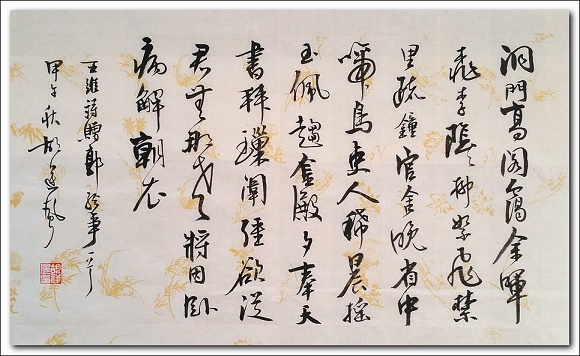 洞門高閣靄余暉
桃李陰々柳絮飛禁
里疏鐘官舍晚省中
啼鳥吏人稀晨搖
玉佩趨金殿夕奉天
書拜瑣闈強欲從
君無那老將因臥
病解朝衣
王維詩贈郭給事一首
甲午秋